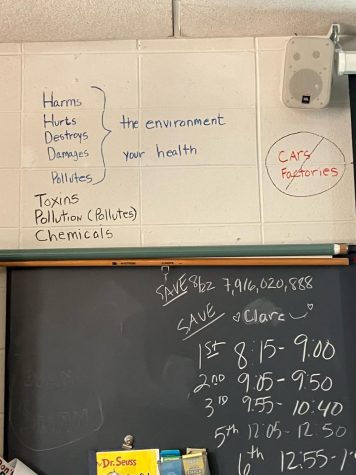 Harms
Hurts
Destroys
Damages
Pollutes
the environment
your health
Toxins
Pollution (Pollutes)
Chemicals
CArs
Factories
JBL
SAVE 8b2 7,916,020,888
SAVE Clare
1st 8:15-9:00
2nd 9:05-9:50
3rd 9:55-10:40
5th 12:05-12:50
6th 12:55-1
Dr. Seuss